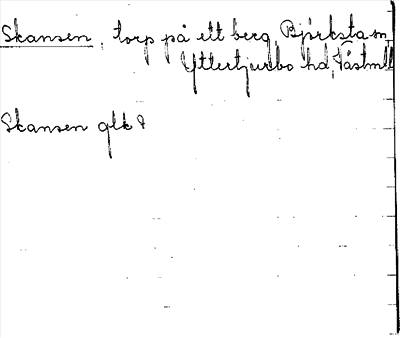 Skansen, torp på ett berg Björksta sn,
Yttertjurbo hd, Västml
Skansen glk